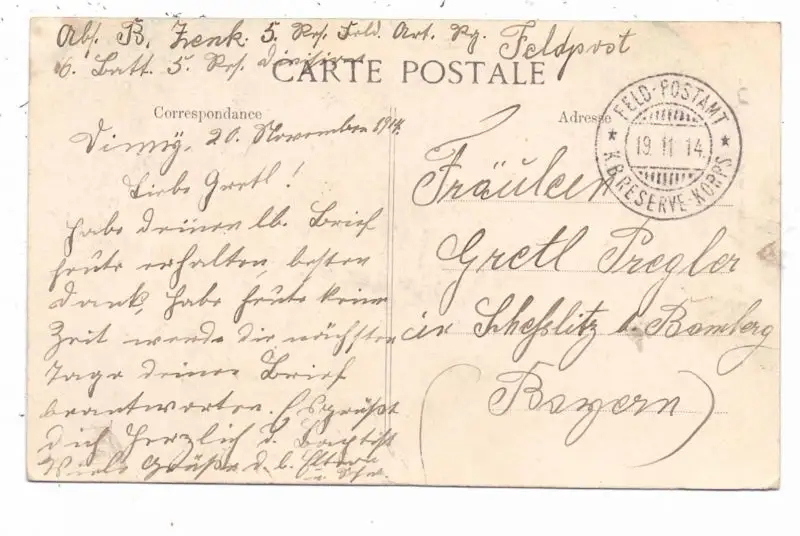 Abs. B. Zenk. 5. Res. Feld. Art. Rg. Feldpost
6. Batt. 5. Res. Division
CARTE POSTALE
Correspondance
Adresse
FELD-POSTAMT
19 11 14.
K.B.RESERVE-KORPS
20. November 1914.
Liebe Gretl!
habe deinen lb. Brief
heute erhalten, besten
Dank, habe heute keine
Zeit werde die nächsten
Tage deinen Brief
beantworten. Es grüßt
dich herzlich d. Baptist
Viele Grüße d. l. Eltern
Fräulein
Gretl Pregler
in Schesslitz b. Bamberg
(Bayern)